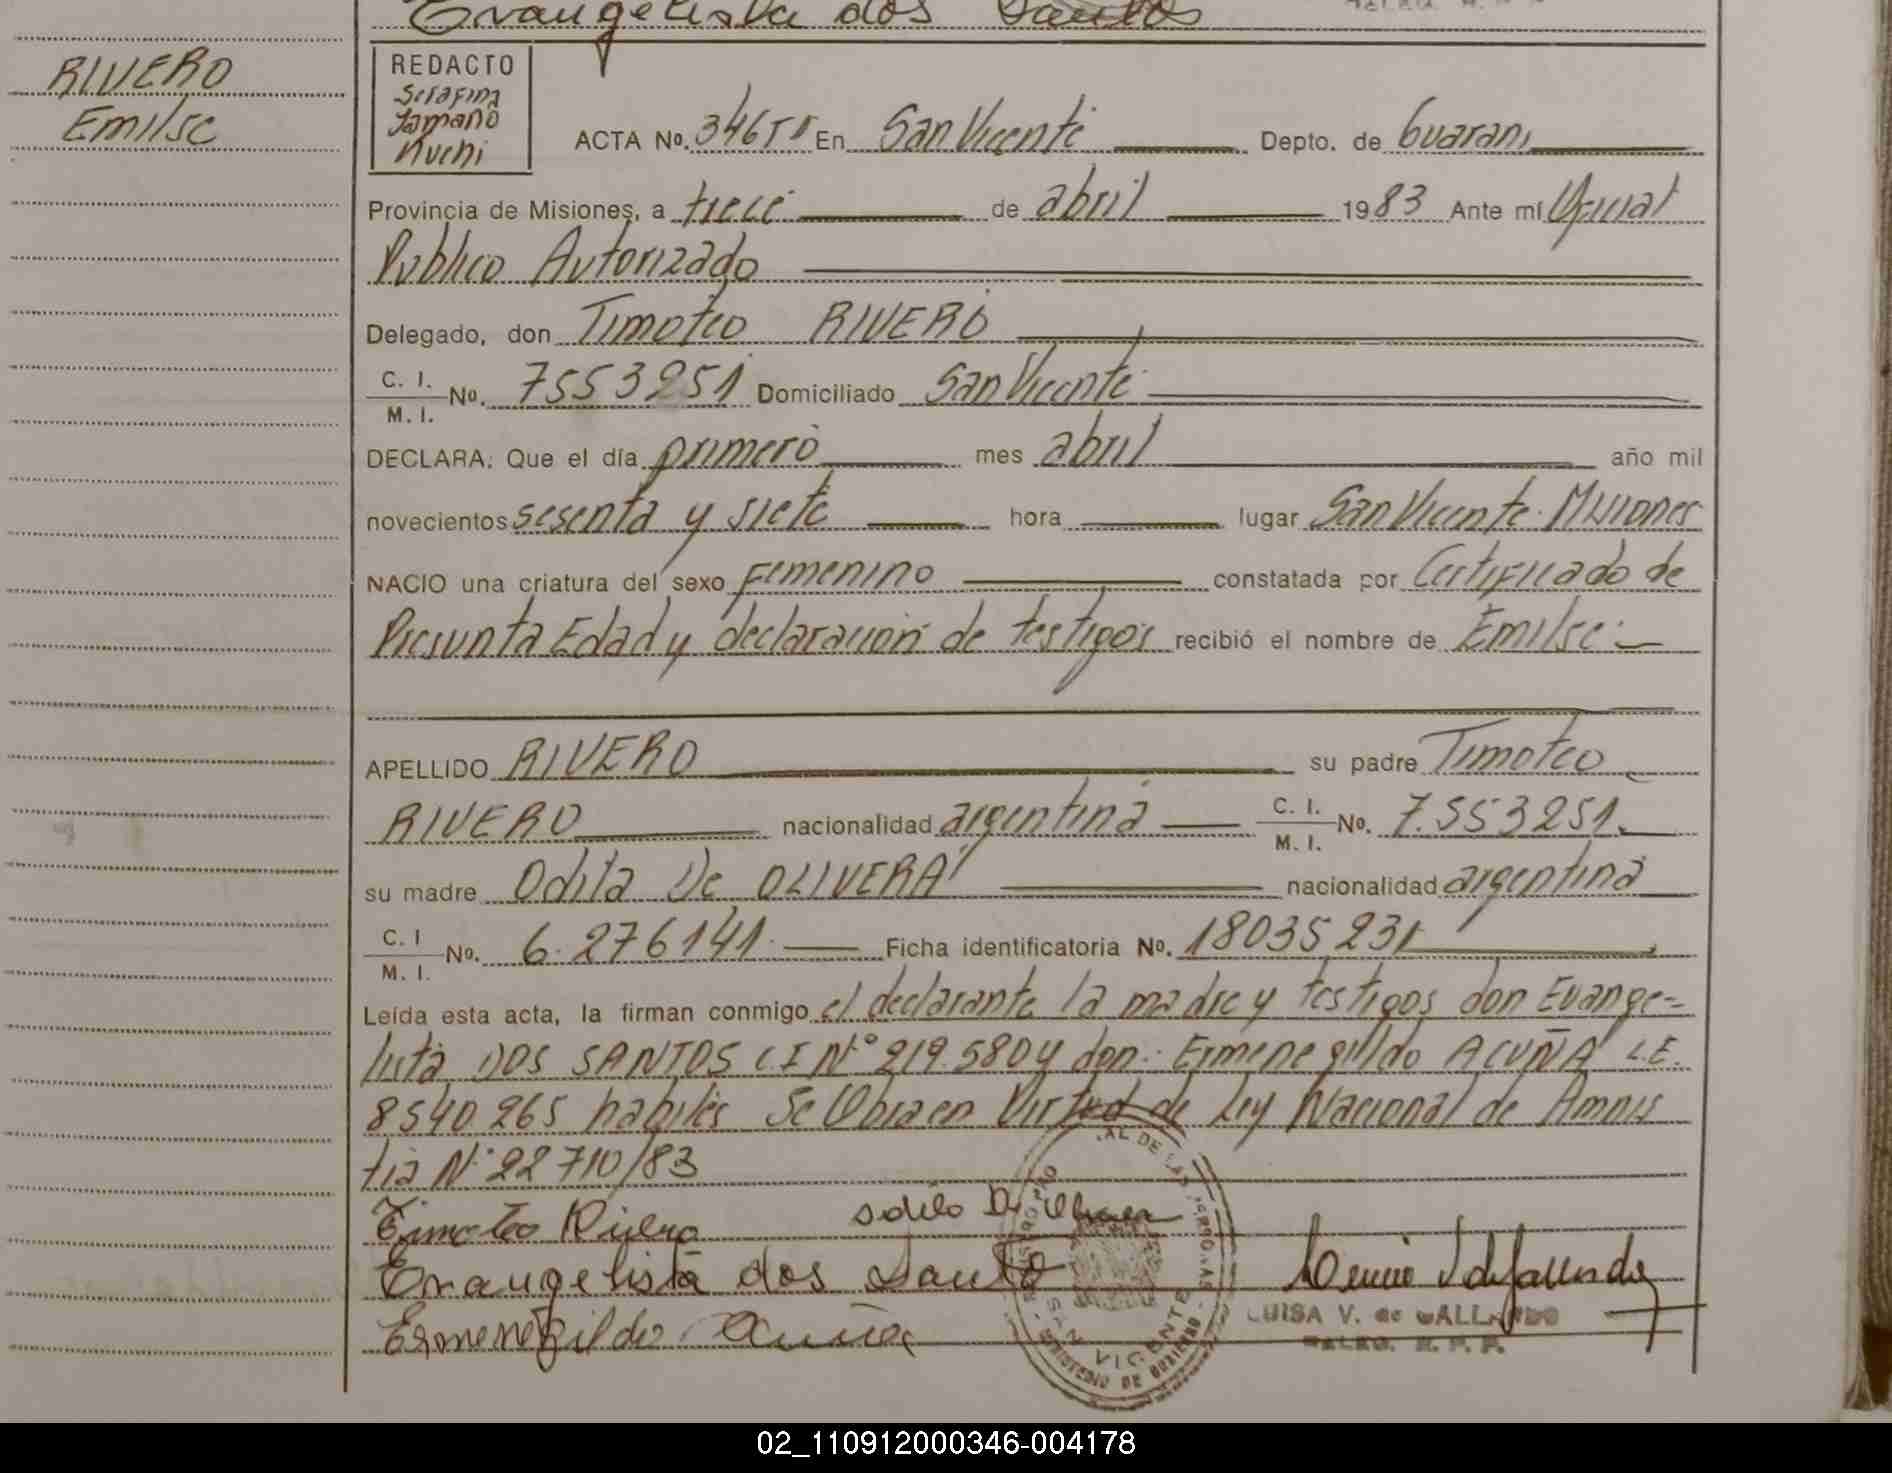 Evangelista dos Santos
RIVERO
Emilse
REDACTO
Serafina
Tamaño
Kuchi
ACTA No. 346 Tº En San Vicente Depto. de Guarani
Provincia de Misiones, a trece de abril 1983 Ante mí Oficial
Publico Autorizado
Delegado, don Timoteo RIVERO
C. I. M. I. No. 7553251 Domiciliado San Vicente
DECLARA: Que el día primero mes abril año mil
novecientos sesenta y siete hora lugar San Vicente Misiones
NACIO una criatura del sexo femenino constatada por Certificado de
Presunta Edad y declaración de testigos recibió el nombre de Emilse
APELLIDO RIVERO su padre Timoteo
RIVERO nacionalidad argentina C. I. M. I. No. 7.553251.
su madre Odila De OLIVERA nacionalidad argentina
C. I M. I. No. 6.276141. Ficha identificatoria No. 18035231
Leída esta acta, la firman conmigo el declarante la madre y testigos don Evange=
lista DOS SANTOS C I Nº 219.580 y don: Ermenegildo ACUÑA L.E.
8540.265 habiles Se Obra en Virtud de Ley Nacional de Amnis
tia Nº 22710/83
Timoteo Rivero
Evangelista dos Santo
Ermenegildo Acuña
SAN VICENTE
MINISTERIO DE GOBIERNO
LUISA V. de GALLARDO